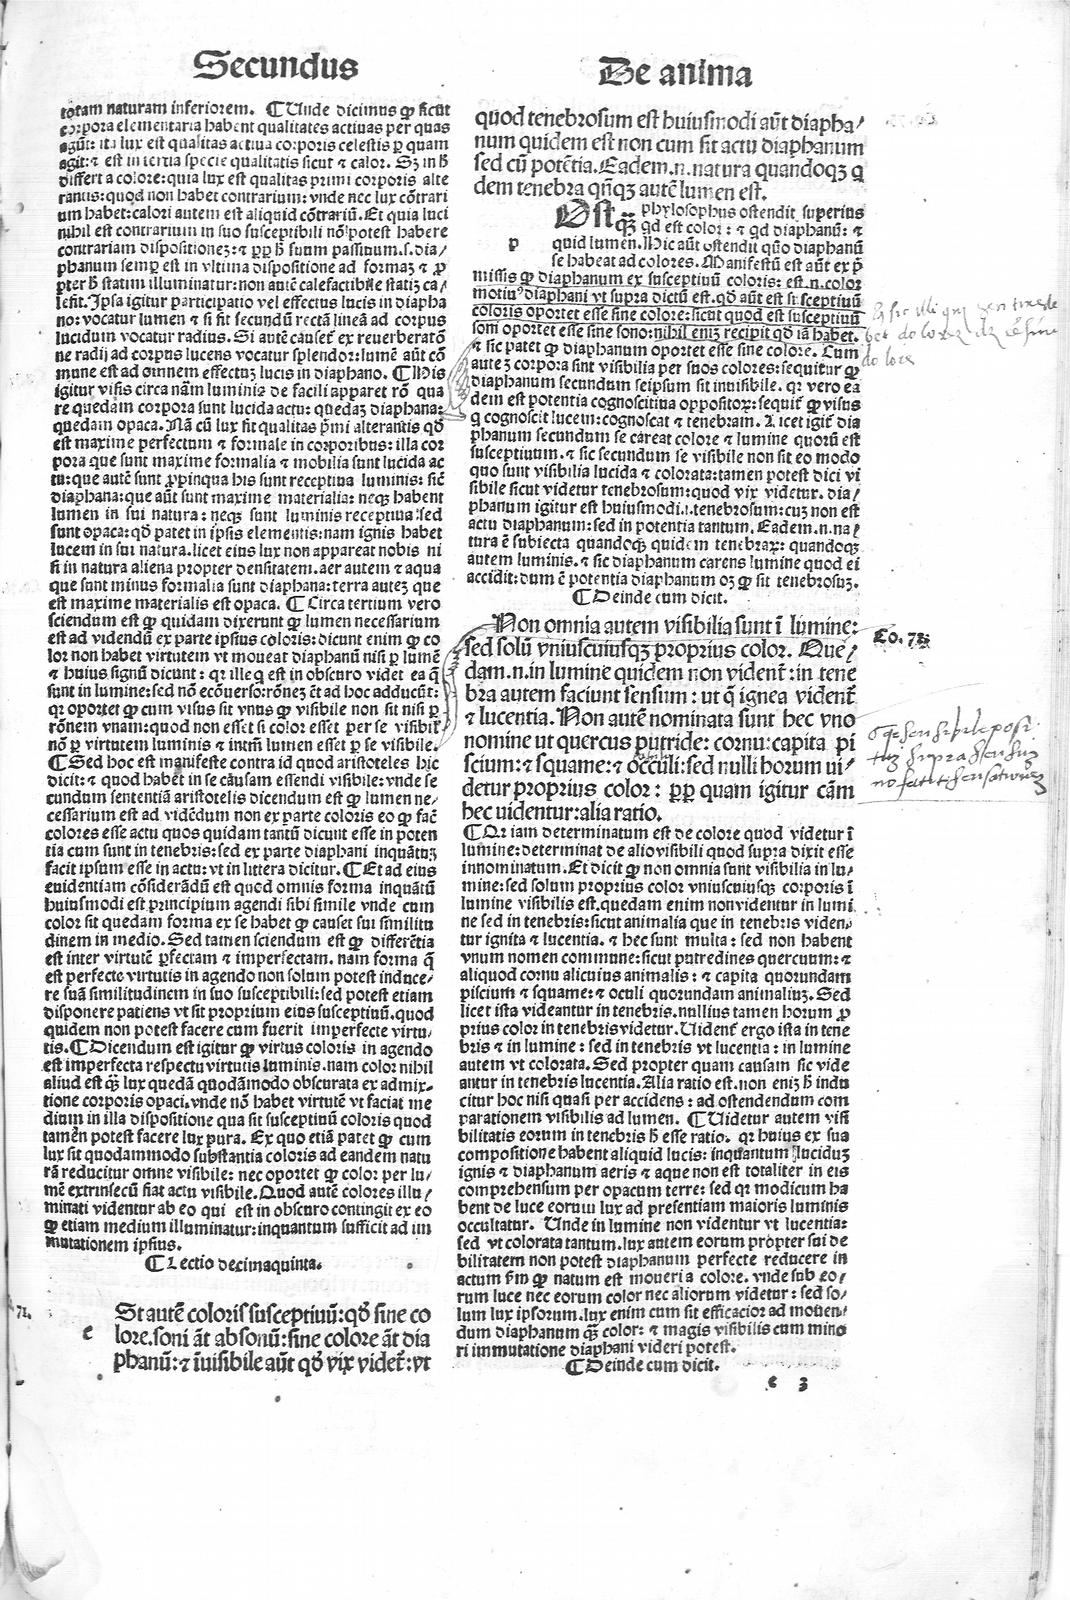 Secundus
totam naturam inferiorem. ¶Unde dicimus ꝙ sicut
corpora elementaria habent qualitates actiuas per quas
agūt: ita lux est qualitas actiua corporis celestis ꝑ quam
agit: ⁊ est in tertia specie qualitatis sicut ⁊ calor. Sꝫ in h̄
differt a colore: quia lux est qualitas primi corporis alte
rantis: quod non habet contrarium: vnde nec lux cōtrari
um habet: calori autem est aliquid cōtrariū. Et quia luci
nihil est contrarium in suo susceptibili nō potest habere
contrariam dispositioneꝫ: ⁊ ꝓpꝑ h̄ suum passiuum.s.dia/
phanum semꝑ est in vltima dispositione ad formaꝫ ⁊ ꝓ
pter h̄ statim illuminatur: non autē calefactibile statiꝫ ca/
lefit. Ipsa igitur participatio vel effectus lucis in diapha
no: vocatur lumen ⁊ si fit secundū rectā lineā ad corpus
lucidum vocatur radius. Si autē causet᷑ ex reuerberatō
ne radij ad corpus lucens vocatur splendor: lumē aūt cō
mune est ad omnem effectuꝫ lucis in diaphano. ¶His
igitur visis circa nām luminis de facili apparet rō qua
re quedam corpora sunt lucida actu: quedaꝫ diaphana:
quedam opaca. Nā cū lux sit qualitas p̄mi alterantis qd̄
est maxime perfectum ⁊ formale in corporibus: illa cor
pora que sunt maxime formalia ⁊ mobilia sunt lucida ac
tu: que autē sunt ꝓpinqua his sunt receptiua luminis: sic̄
diaphana: que aūt sunt maxime materialia: neqꝫ habent
lumen in sui natura: neqꝫ sunt luminis receptiua: sed
sunt opaca: qd̄ patet in ipsis elementis: nam ignis habet
lucem in sui natura. licet eius lux non appareat nobis ni
si in natura aliena propter densitatem. aer autem ⁊ aqua
que sunt minus formalia sunt diaphana: terra auteꝫ que
est maxime materialis est opaca. ¶Circa tertium vero
sciendum est ꝙ quidam dixerunt ꝙ lumen necessarium
est ad videndū ex parte ipsius coloris: dicunt enim ꝙ co
lor non habet virtutem vt moueat diaphanū nisi ꝑ lumē
⁊ huius signū dicunt: qꝛ ille q̄ est in obscuro videt ea q̄
sunt in lumine: sed nō ecōuerso: rōneꝫ ēt ad hoc adducūt:
qꝛ oportet ꝙ cum visus sit vnus ꝙ visibile non sit nisi ꝑ
rōnem vnam: quod non esset si color esset per se visibil᷑
nō ꝑ virtutem luminis ⁊ iteꝝ lumen esset ꝑ se visibile.
¶Sed hoc est manifeste contra id quod aristoteles hic
dicit: ⁊ quod habet in se causam essendi visibile: vnde se
cundum sententiā aristotelis dicendum est ꝙ lumen ne/
cessarium est ad videndum non ex parte coloris eo ꝙ fac̄
colores esse actu quos quidam tantū dicunt esse in poten
tia cum sunt in tenebris: sed ex parte diaphani inquātuꝫ
facit ipsum esse in actu: vt in littera dicitur. ¶Et ad eius
euidentiam cōsiderādū est quod omnis forma inquātū
huiusmodi est principium agendi sibi simile vnde cum
color sit quedam forma ex se habet ꝙ causet sui similitu
dinem in medio. Sed tamen sciendum est ꝙ differētia
est inter virtutē ꝑfectam ⁊ imperfectam. nam forma q̄
est perfecte virtutis in agendo non solum potest induce/
re suā similitudinem in suo susceptibili: sed potest etiam
disponere patiens vt sit proprium eius susceptiuū. quod
quidem non potest facere cum fuerit imperfecte virtu/
tis. ¶Dicendum est igitur ꝙ virtus coloris in agendo
est imperfecta respectu virtutis luminis. nam color nihil
aliud est qꝫ lux quedā quodāmodo obscurata ex admix/
tione corporis opaci. vnde nō habet virtutē vt faciat me
dium in illa dispositione qua sit susceptiuū coloris quod
tamen potest facere lux pura. Ex quo etiā patet ꝙ cum
lux sit quodammodo substantia coloris ad eandem natu
rā reducitur omne visibile: nec oportet ꝙ color per lu/
mē extrinsecū fiat actu visibile. Quod autē colores illu/
minati videntur ab eo qui est in obscuro contingit ex eo
ꝙ etiam medium illuminatur: inquantum sufficit ad im
mutationem ipsius.
¶Lectio decimaquinta.
71.
e
St autē coloris susceptiuū: qd̄ sine co
lore. soni āt absonū: sine colore āt dia
phanū: ⁊ īuisibile aūt qd̄ vix videt᷑: vt
De anima
quod tenebrosum est huiusmodi aūt diapha/
num quidem est non cum sit actu diaphanum
sed cū potētia. Eadem.n.natura quandoqꝫ q
dem tenebra qn̄qꝫ autē lumen est.
p
Ost qꝫ phylosophus ostendit superius
qd est color: ⁊ qd diaphanū: ⁊
quid lumen. Hic aūt ostendit quō diaphanū
se habeat ad colores. Manifestū est aūt ex p̄
missis ꝙ diaphanum ex susceptiuū coloris: est.n.color
motiuꝰ diaphani vt supra dictū est. qd̄ aūt est susceptiuū
coloris oportet esse sine colore: sicut quod est susceptiuū
soni oportet esse sine sono: nihil eniꝫ recipit qd̄ iā habet.
⁊ sic patet ꝙ diaphanum oportet esse sine colore. Cum
auteꝫ corpora sint visibilia per suos colores: sequitur ꝙ
diaphanum secundum seipsum sit inuisibile. qꝛ vero ea
dem est potentia cognoscitiua oppositoꝝ: sequit᷑ ꝙ visus
q cognoscit lucem: cognoscat ⁊ tenebram. Licet igit᷑ dia
phanum secundum se careat colore ⁊ lumine quorū est
susceptiuum. ⁊ sic secundum se visibile non sit eo modo
quo sunt visibilia lucida ⁊ colorata: tamen potest dici vi
sibile sicut videtur tenebrosum: quod vix videtur. dia/
phanum igitur est huiusmodi.i.tenebrosum: cuꝫ non est
actu diaphanum: sed in potentia tantum. Eadem.n.na/
tura ē subiecta quandoqꝫ quidem tenebraꝝ: quandoqꝫ
autem luminis. ⁊ sic diaphanum carens lumine quod ei
accidit: dum ē potentia diaphanum oꝫ ꝙ sit tenebrosuꝫ.
¶Deinde cum dicit.
Non omnia autem visibilia sunt ī lumine:
Co. 72.
sed solū vniuscuiusqꝫ proprius color. Que/
dam.n.in lumine quidem non vident᷑: in tene
bra autem faciunt sensum: ut q̄ ignea vident᷑
⁊ lucentia. Non autē nominata sunt hec vno
nomine ut quercus putride: cornu: capita pi
scium: ⁊ squame: ⁊ occuli: sed nulli horum ui/
detur proprius color: ꝓpꝑ quam igitur cām
hec uidentur: alia ratio.
¶Qꝛ iam determinatum est de colore quod videtur ī
lumine: determinat de alio visibili quod supra dixit esse
innominatum. Et dicit ꝙ non omnia sunt visibilia in lu/
mine: sed solum proprius color vniuscuiusqꝫ corporis ī
lumine visibilis est. quedam enim non videntur in lumi
ne sed in tenebris: sicut animalia que in tenebris viden/
tur ignita ⁊ lucentia. ⁊ hec sunt multa: sed non habent
vnum nomen commune: sicut putredines quercuum: ⁊
aliquod cornu alicuius animalis: ⁊ capita quorundam
piscium ⁊ squame: ⁊ oculi quorundam animaliuꝫ. Sed
licet ista videantur in tenebris. nullius tamen horum ꝓ
prius color in tenebris videtur. Vident᷑ ergo ista in tene
bris ⁊ in lumine: sed in tenebris vt lucentia: in lumine
autem vt colorata. Sed propter quam causam sic vide
antur in tenebris lucentia. Alia ratio est. non eniꝫ h̄ indu
citur hoc nisi quasi per accidens: ad ostendendum com
parationem visibilis ad lumen. ¶Uidetur autem visi
bilitatis eorum in tenebris h̄ esse ratio. qꝛ huius ex sua
compositione habent aliquid lucis: inquantum luciduꝫ
ignis ⁊ diaphanum aeris ⁊ aque non est totaliter in eis
comprehensum per opacum terre: sed qꝛ modicum ha
bent de luce eorum lux ad presentiam maioris luminis
occultatur. Unde in lumine non videntur vt lucentia:
sed vt colorata tantum. lux autem eorum propter sui de
bilitatem non potest diaphanum perfecte reducere in
actum ẜm ꝙ natum est moueri a colore. vnde sub eo/
rum luce nec eorum color nec aliorum videtur: sed so/
lum lux ipsorum. lux enim cum sit efficacior ad mouen/
dum diaphanum qꝫ color: ⁊ magis visibilis cum mino
ri immutatione diaphani videri potest.
¶Deinde cum dicit.
e 3